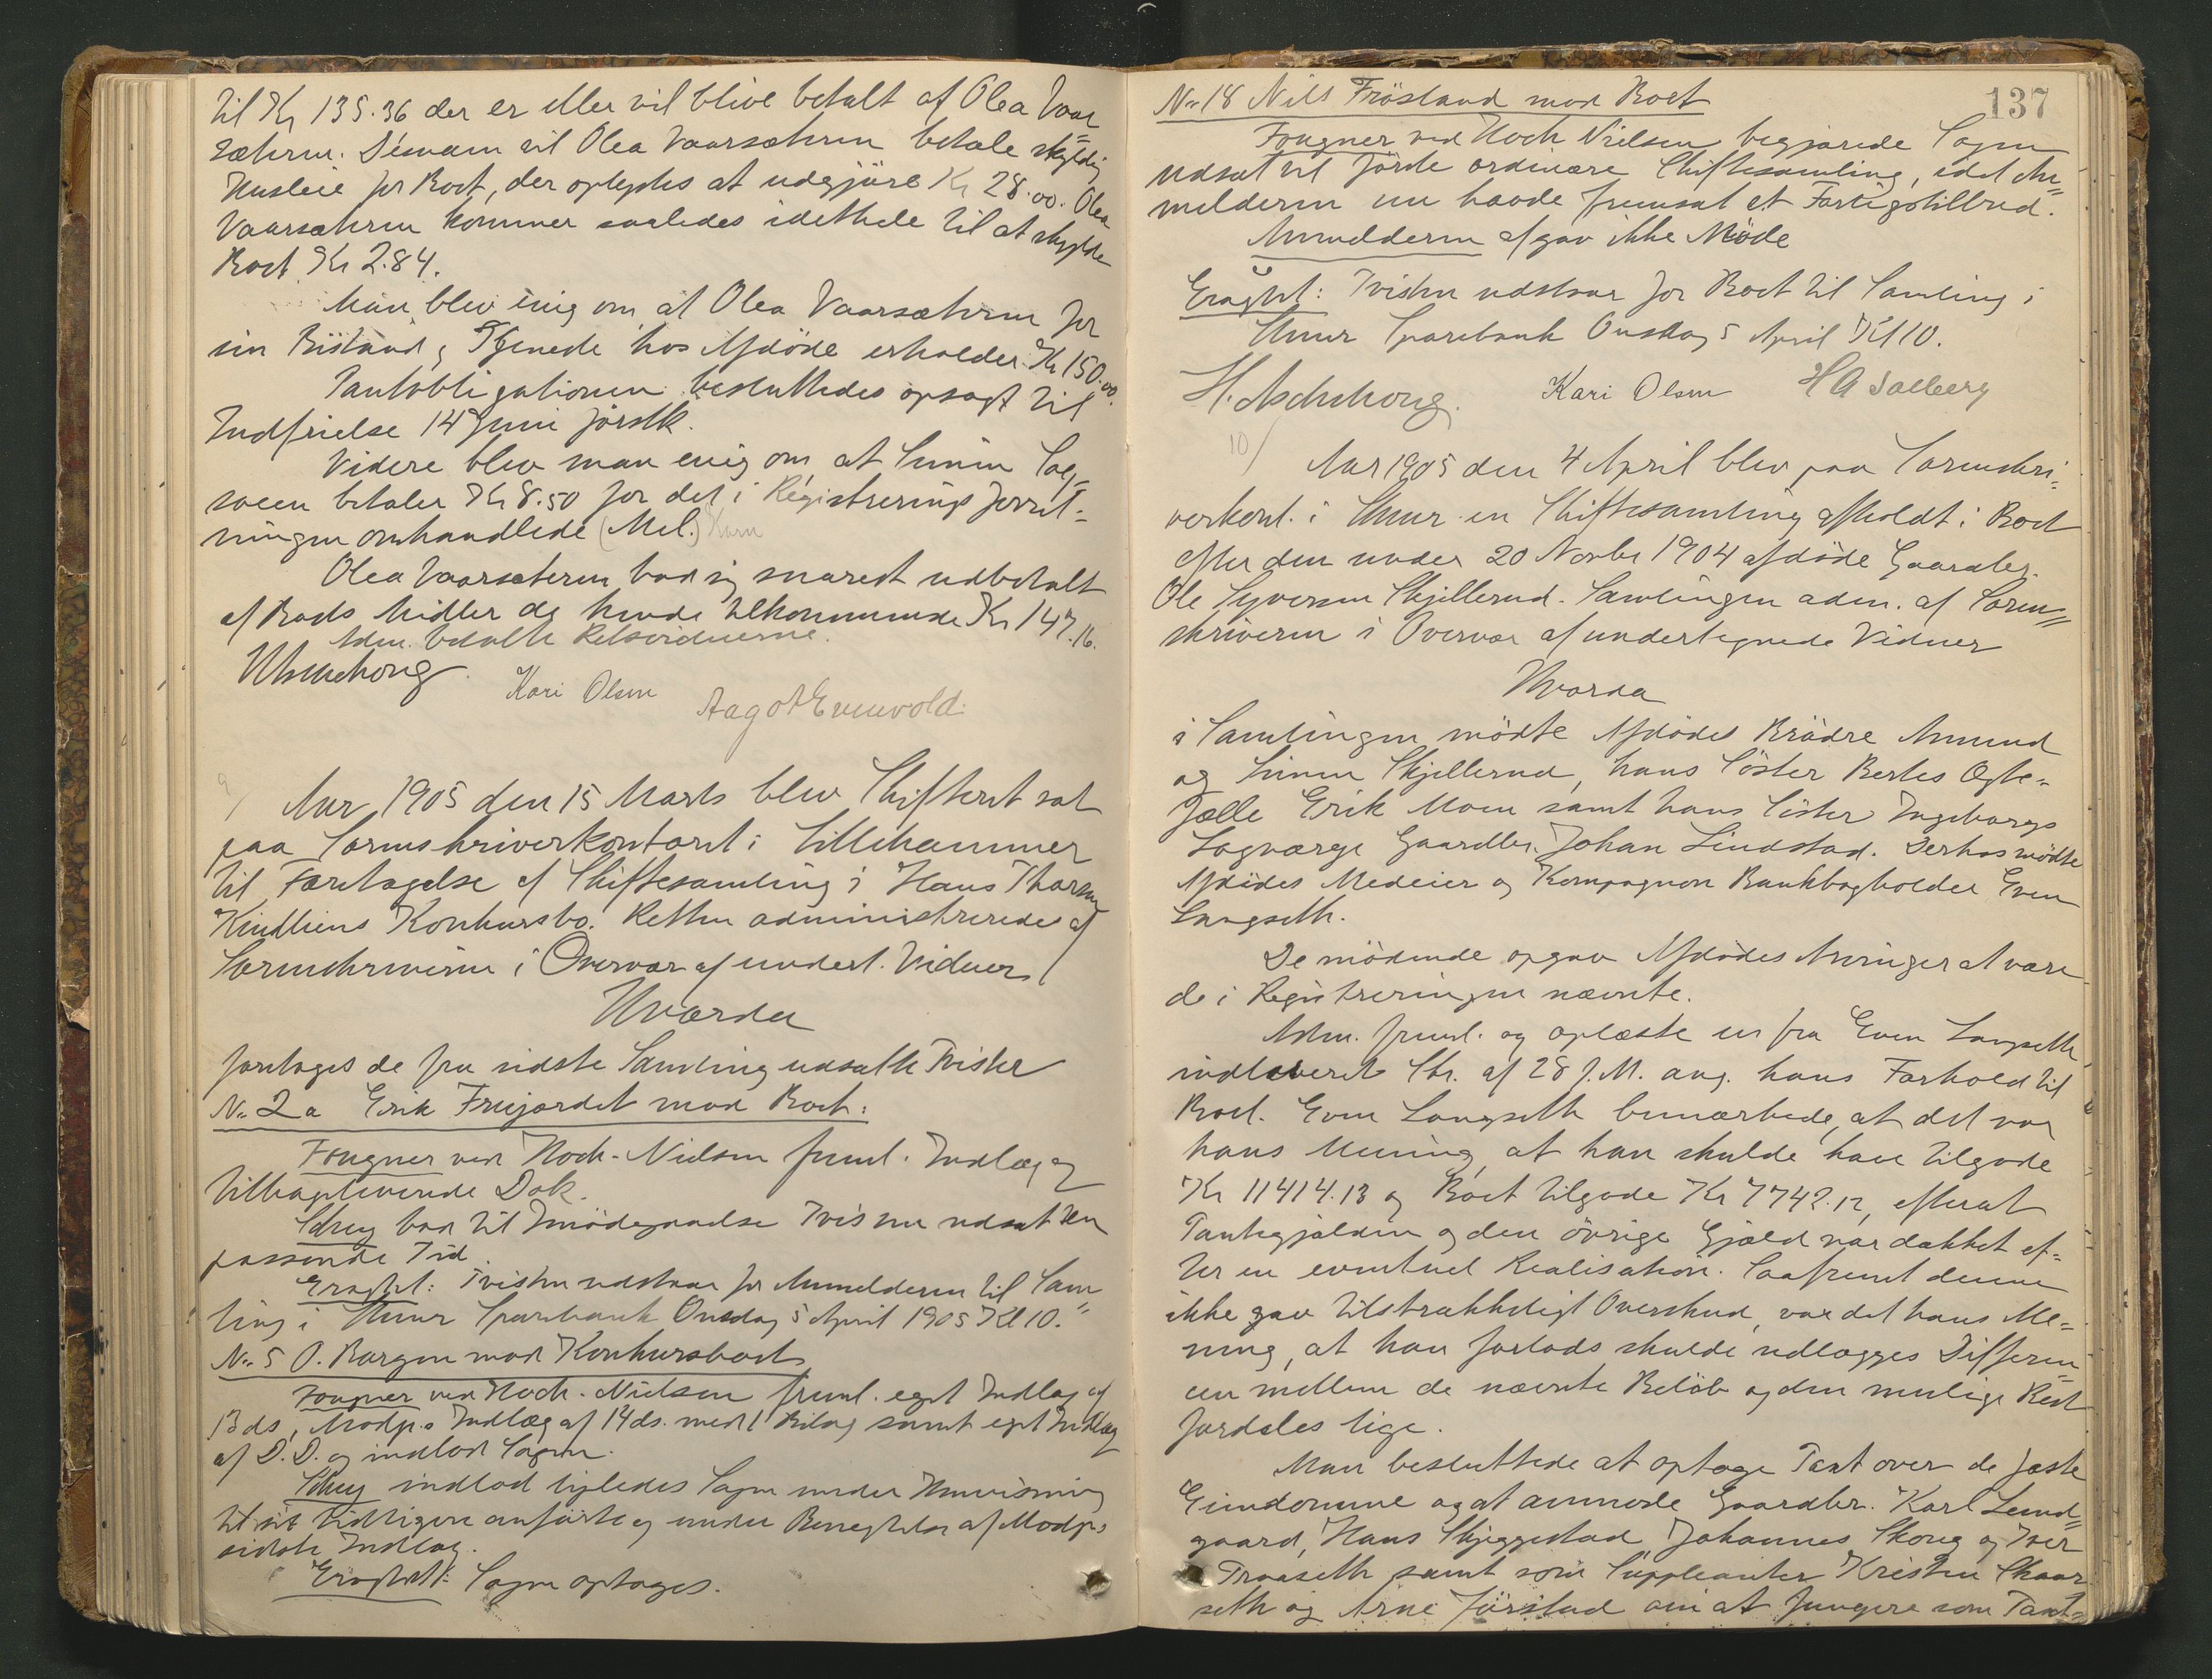 til Kr 135.36 der er eller vil blive betalt af Olea Vaar=
sæteren. Desuden vil Olea Vaarsæteren betale skyldig
Husleie for Boet, der oplystes at udgjøre Kr 28.00. Olea
Vaarsæteren kommer saaledes idethele til at skylde
Boet Kr 2.84.
Man blev enig om at Olea Vaarsæteren for
sin Bistand, Tjeneste hos Afdøde erholder Kr 150.00.
Pantobligationen besluttedes opsagt til
Indfrielse 14 Juni førstk.
Videre blev man enig om at Simen Log=
sveen betaler Kr 8.50 for det i Registreringsforret=
ningen omhandlede (Mel.) Korn
Olea Vaarsæteren bad sig snarest udbetalt
af Boets Midler de hende tilkommende Kr 147.16.
Adm. betalte Retsvidnerne.
H. Aschehoug. Kari Olsen Aagot Evenvold.
9/ Aar 1905 den 15 Marts blev Skifteret sat
paa Sorenskriverkontoret i Lillehammer
til Foretagelse af Skiftesamling i Hans Thoresen
Kindliens Konkursbo. Retten administreredes af
Sorenskriveren i Overvær af undert. Vidner
Hvorda
foretoges de fra sidste Samling udsatte Tvister
No 2a Erik Freijordet mod Boet:
Fougner ved Hoch-Nielsen freml. Indlæg og
tilhaglevende Dok.
Schug bad til Imødegaaelse Tvisten udsat den
passende Tid.
Eragtet: Tvisten udstaar for Anmelderen til Sam=
ling i Amur Sparebank Onsdag 5 April 1905 Kl 10.
No 5 O. Borgen mod Konkursboet
Fougner ved Hoch-Nielsen freml. eget Indlæg af
13 ds, Modp.s Indlæg af 14 ds. med 1 Bilag samt eget Indlæg
af D.D. og indlod Sagen.
Schug indlod ligeledes Sagen under Henvisning
til sit tidligere anførte og under Benegtelse af Modp.s
sidste Indlæg.
Eragtet: Sagen optages.
137
No 18 Nils Frøsland mod Boet
Fougner ved Hoch Nielsen begjærede Sagen
udsat til første ordinære Skiftesamling, idet An=
melderen nu havde fremsat et Forligstilbud.
Anmelderen afgav ikke Møde
Eragtet: Tvisten udstaar for Boet til Samling i
Amur Sparebank Onsdag 5 April Kl 10.
H. Aschehoug. Kari Olsen H A Solberg
10/ Aar 1905 den 4 April blev paa Sorenskri=
verkont. i Amur en Skiftesamling afholdt i Boet
efter den under 20 Novbr 1904 afdøde Gaardbr.
Ole Syversen Skjellerud. Samlingen adm. af Soren=
skriveren i Overvær af undertegnede Vidner
Hvorda
i Samlingen mødte Afdødes Brødre Amund
og Simen Skjellerud, hans Søster Bertes Ægte=
fælle Erik Moen samt hans Søster Ingeborgs
Lagværge Gaardbr. Johan Lindstad. Derhos mødte
Afdødes Medeier og Kompagnon Bankbogholder Even
Langseth.
De mødende opgav Afdødes Arvinger at være
de i Registreringen nævnte.
Adm. freml. og oplæste en fra Even Langseth
indleveret Skr. af 28 f.M. ang. hans Forhold til
Boet. Even Langseth bemærkede, at det var
hans Mening, at han skulde have tilgode
Kr 11414.13 og Boet tilgode Kr 7742.12, efterat
Pantegjælden og den øvrige Gjæld var dækket ef=
ter en eventuel Realisation. Saafremt denne
ikke gav tilstrækkeligt Overskud, var det hans Me=
ning, at han forlods skulde udlægges Differen=
cen mellem de nævnte Beløb og den mulige Rest
fordeles lige.
Man besluttede at optage Taxt over de faste
Eiendomme og at anmode Gaardbr. Karl Lund=
gaard, Hans Skjeggestad, Johannes Skoug og Iver
Traaseth samt som Suppleanter Kristen Skaar
seth og Arne Jørstad om at fungere som Taxt=